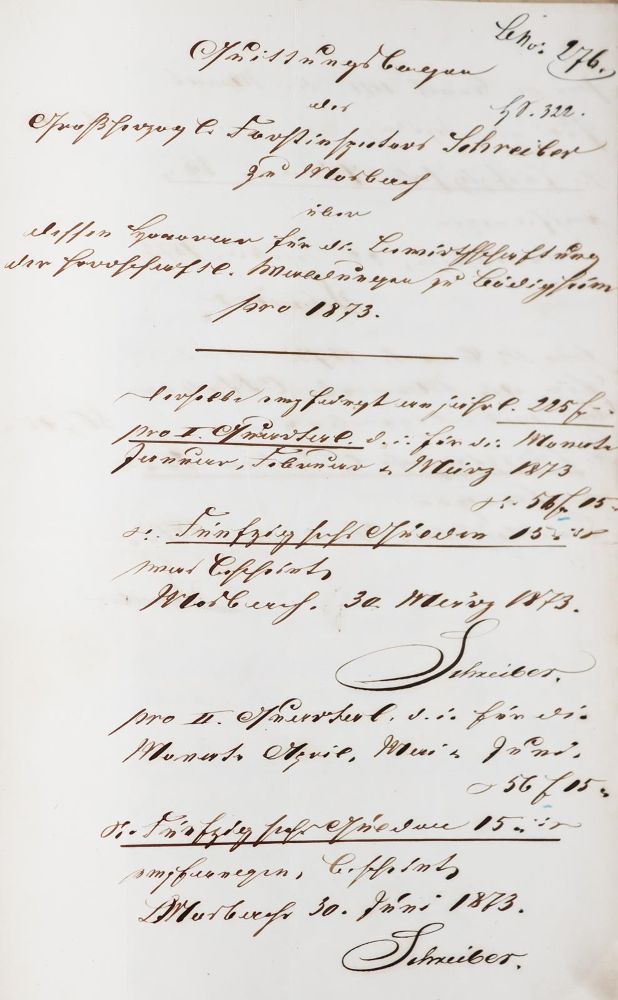 No: 276.
Quittungsbogen
des
H.S. 322.
Großherzogl. Forstinspectors Schreiber
zu Mosbach
über
dessen Honorar für die Bewirthschaftung
der herrschaftl. Waldungen zu Bödigheim
pro 1873.
Derselbe empfängt an jährl. 225 f –
pro I. Quartal, d. i. für die Monate
Januar, Februar u. März 1873
56 f 15
Fünfzig sechs Gulden 15
was bescheint,
Mosbach, 30. März 1873.
Schreiber.
pro II. Quartal, d. i. für die
Monate April, Mai u. Juni.
56 f 15
Fünfzig sechs Gulden 15
empfangen, bescheint,
Mosbach 30. Juni 1873.
Schreiber.